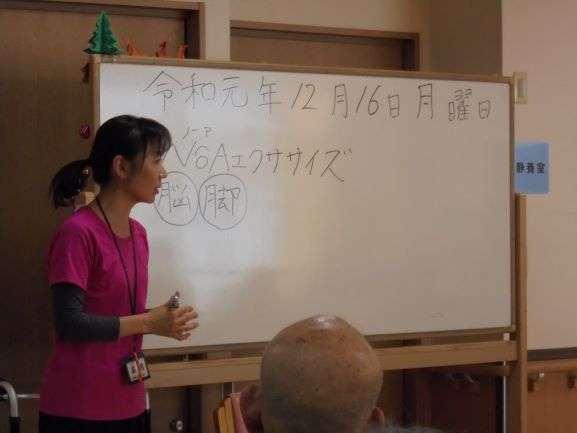 令和元年12月16日月曜日
ノーア
NOAエクササイズ
脳 脚
静養室